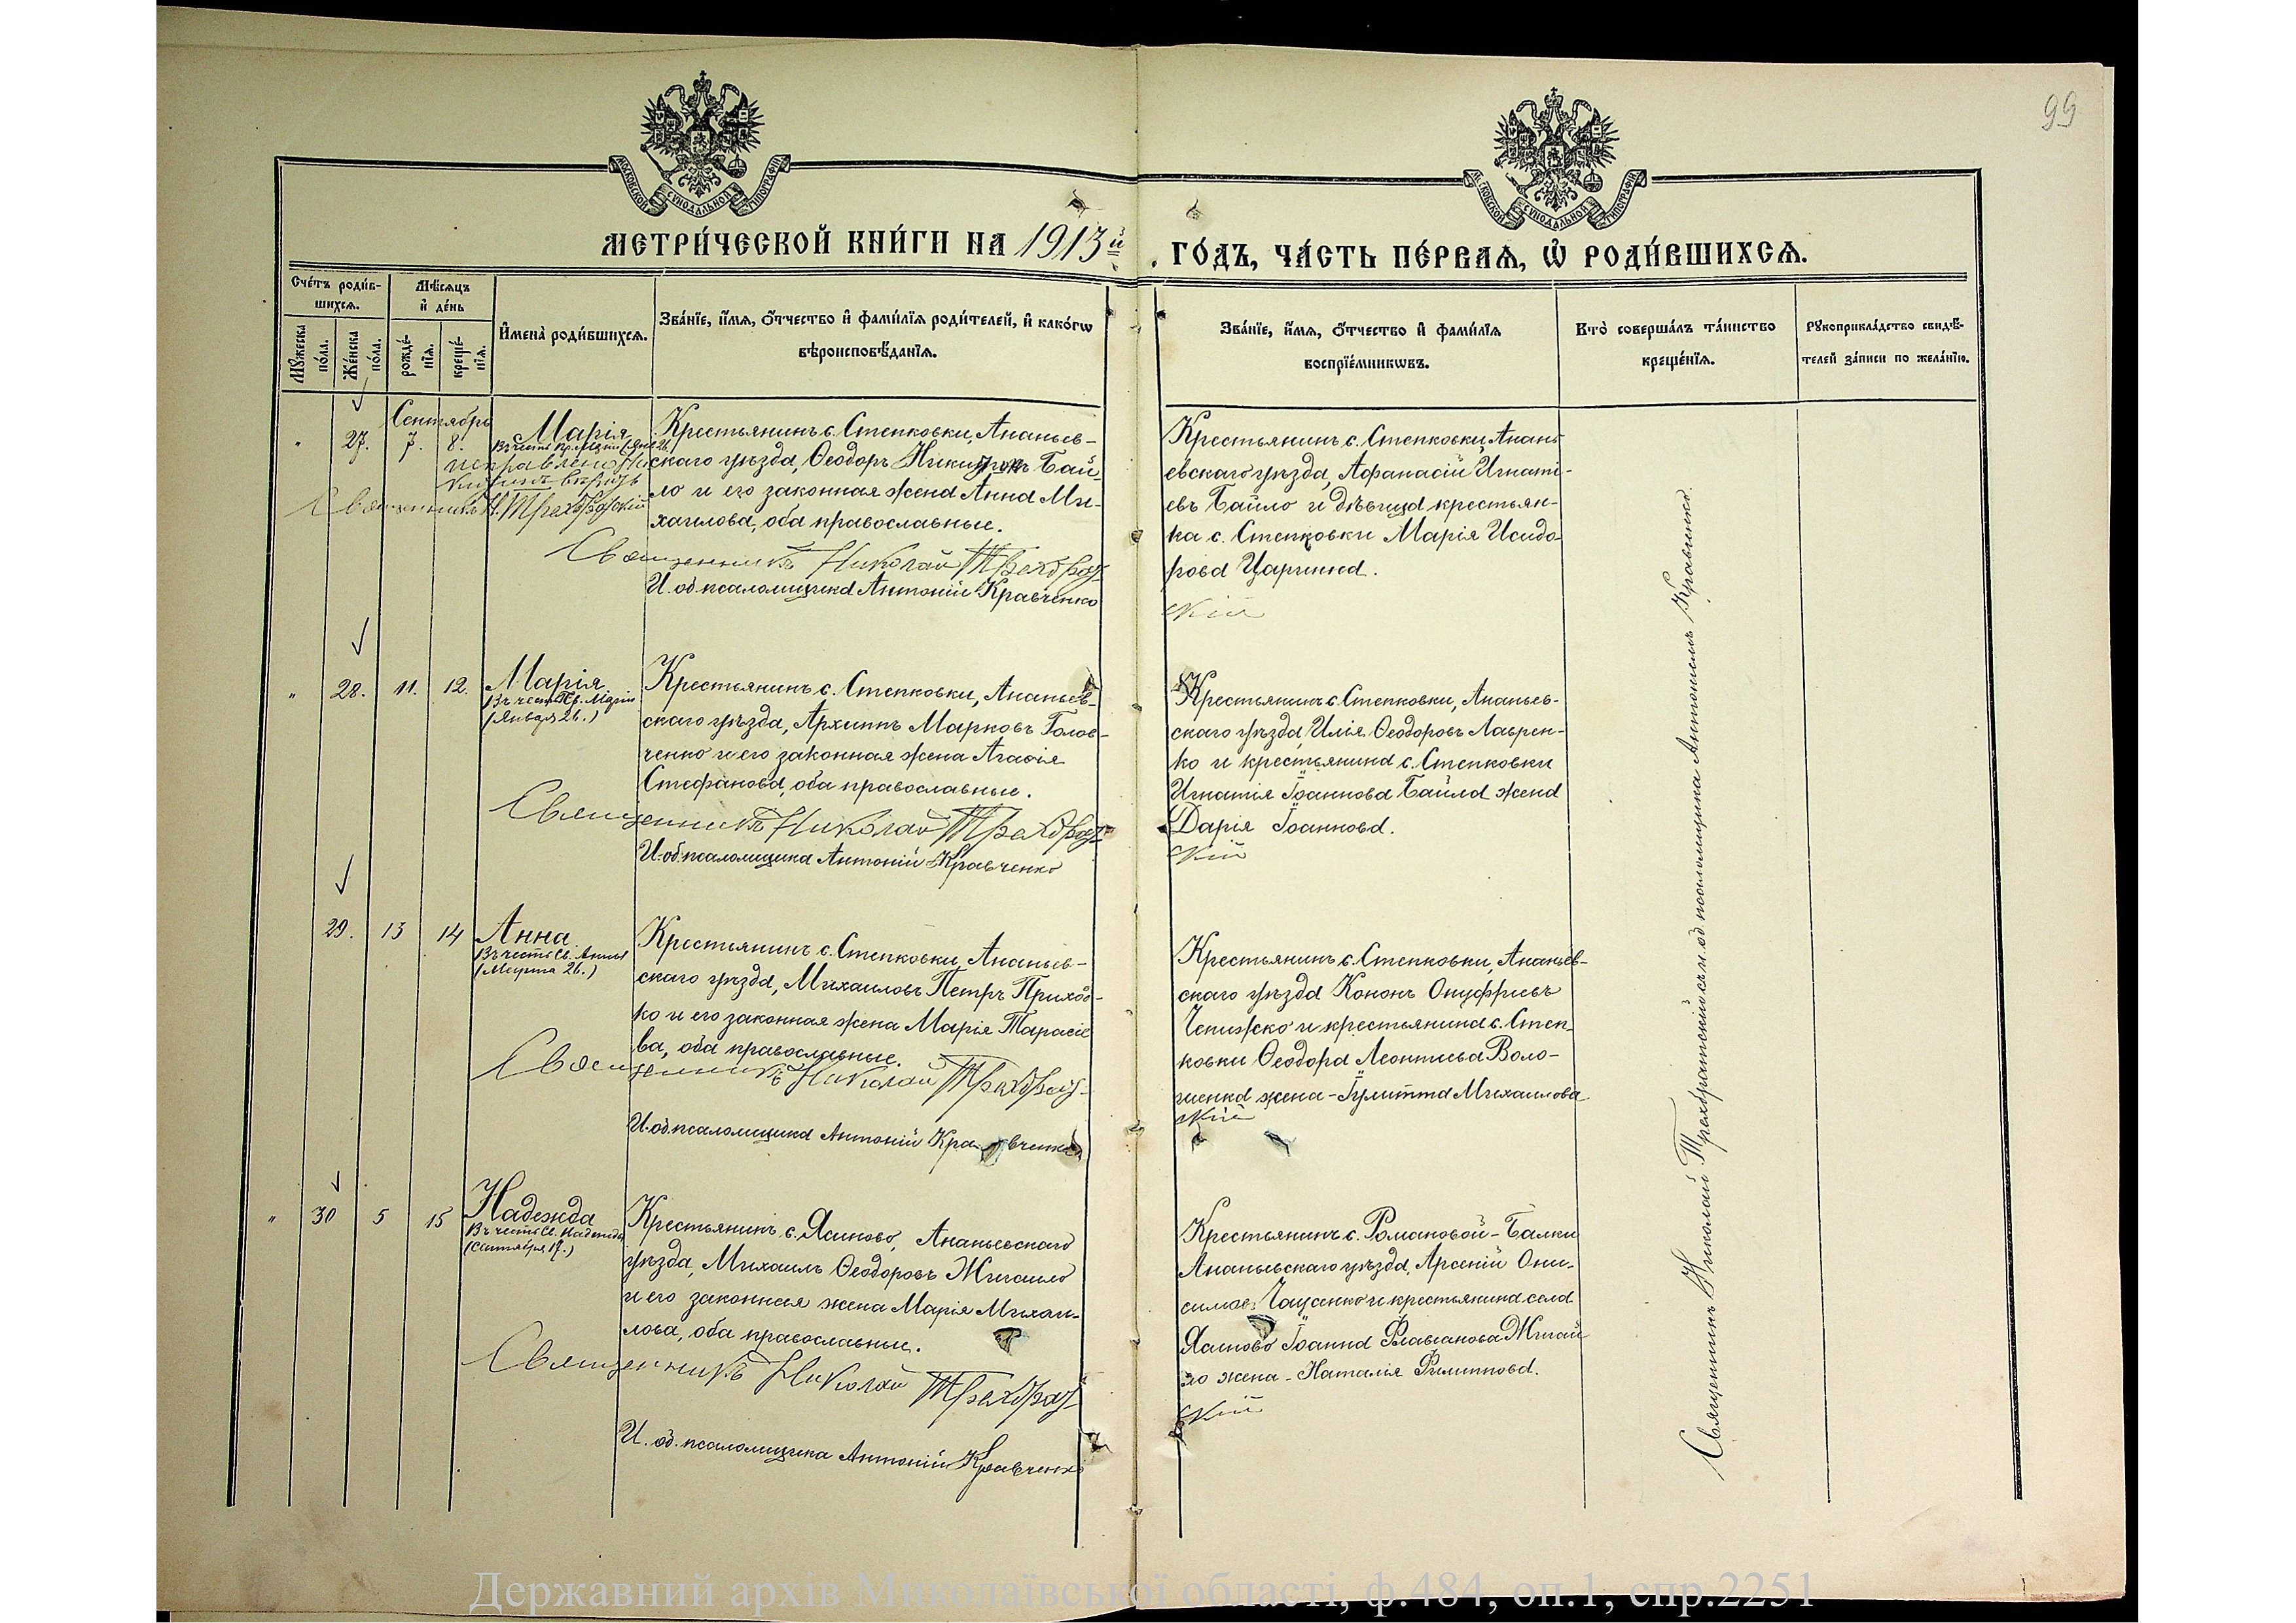 99
МОСКОВСКОЙ СѴНОДАЛЬНОЙ ТИПОГРАФІИ
МОСКОВСКОЙ СѴНОДАЛЬНОЙ ТИПОГРАФІИ
МЕТРИ́ЧЕСКОЙ КНИ́ГИ НА 1913й ГО́ДЪ, ЧА́СТЬ ПЕ́РВАѦ, Ѡ҆ РОДИ́ВШИХСѦ.
Сче́тъ роди́в-
шихсѧ.
Мѣ́сѧцъ
и҆ де́нь
Мꙋ́жеска по́ла.
Же́нска по́ла.
рожде́-
нїѧ.
креще́-
нїѧ.
И҆мена̀ роди́вшихсѧ.
Зва́нїе, и҆́мѧ, ѻ҆́тчество и҆ фами́лїѧ роди́телей, и҆ како́гѡ
вѣроисповѣ́данїѧ.
Зва́нїе, и҆́мѧ, ѻ҆́тчество и҆ фами́лїѧ
воспрїе́мникѡвъ.
Кто̀ соверша́лъ та́инство
креще́нїѧ.
Рꙋкоприкла́дство свидѣ́-
телей за́писи по жела́нїю.
Сентябрь
27. 7. 8. Марія
Въ честь Пр. Маріи (Янв. 26.
исправлено Ни-
китинъ вѣрно
Священникъ Н. Трехбратскій
Крестьянинъ с. Степковки, Ананьев-
скаго уѣзда, Ѳеодоръ Никитинъ Бай-
ло и его законная жена Анна Ми-
хаилова, оба православные.
Священникъ Николай Трехбрат-
И. об. псаломщика Антоній Кравченко
Крестьянинъ с. Степковки, Анань-
евскаго уѣзда, Афанасій Игнаті-
евъ Байло и дѣвица крестьян-
ка с. Степковки Марія Исидо-
рова Царицина.
скій
" 28. 11. 12. Марія
Въ честь Пр. Маріи
(Января 26.)
Крестьянинъ с. Степковки, Ананьев-
скаго уѣзда, Архиппъ Марковъ Голов-
ченко и его законная жена Агаѳія
Стефанова, оба православные.
Священникъ Николай Трехбрат-
И. об. псаломщика Антоній Кравченко
Крестьянинъ с. Степковки, Ананьев-
скаго уѣзда, Илія Ѳеодоровъ Лаврен-
ко и крестьянина с. Степковки
Игнатія Іоаннова Байла жена
Дарія Іоаннова.
скій
29. 13 14 Анна
Въ честь Св. Анны
(Марта 26.)
Крестьянинъ с. Степковки, Ананьев-
скаго уѣзда, Михаиловъ Петръ Приход-
ко и его законная жена Марія Тарасіе
ва, оба православные.
Священникъ Николай Трехбрат-
И. об. псаломщика Антоній Кравченко
Крестьянинъ с. Степковки, Ананьев-
скаго уѣзда Кононъ Онуфріевъ
Чепижко и крестьянина с. Степ-
ковки Ѳеодора Леонтьева Воло-
шенка жена - Іулитта Михаилова.
скій
" 30 5 15 Надежда
Въ честь Св. Надежды
(Сентября 17.)
Крестьянинъ с. Ясиново, Ананьевскаго
уѣзда, Михаилъ Ѳеодоровъ Жигайло
и его законная жена Марія Михаи-
лова, оба православные.
Священникъ Николай Трехбрат-
И. об. псаломщика Антоній Кравченко
Крестьянинъ с. Романовой-Балки
Ананьевскаго уѣзда, Арсеній Они-
симовъ и крестьянина села
Ясиново Іоанна Флавіанова Жигай
ло жена - Наталія Филиппова.
скій
Священникъ Николай Трехбратскій съ и. об. псаломщика Антоніемъ Кравченко.
Державний архів Миколаївської області, ф.484, оп.1, спр.2251